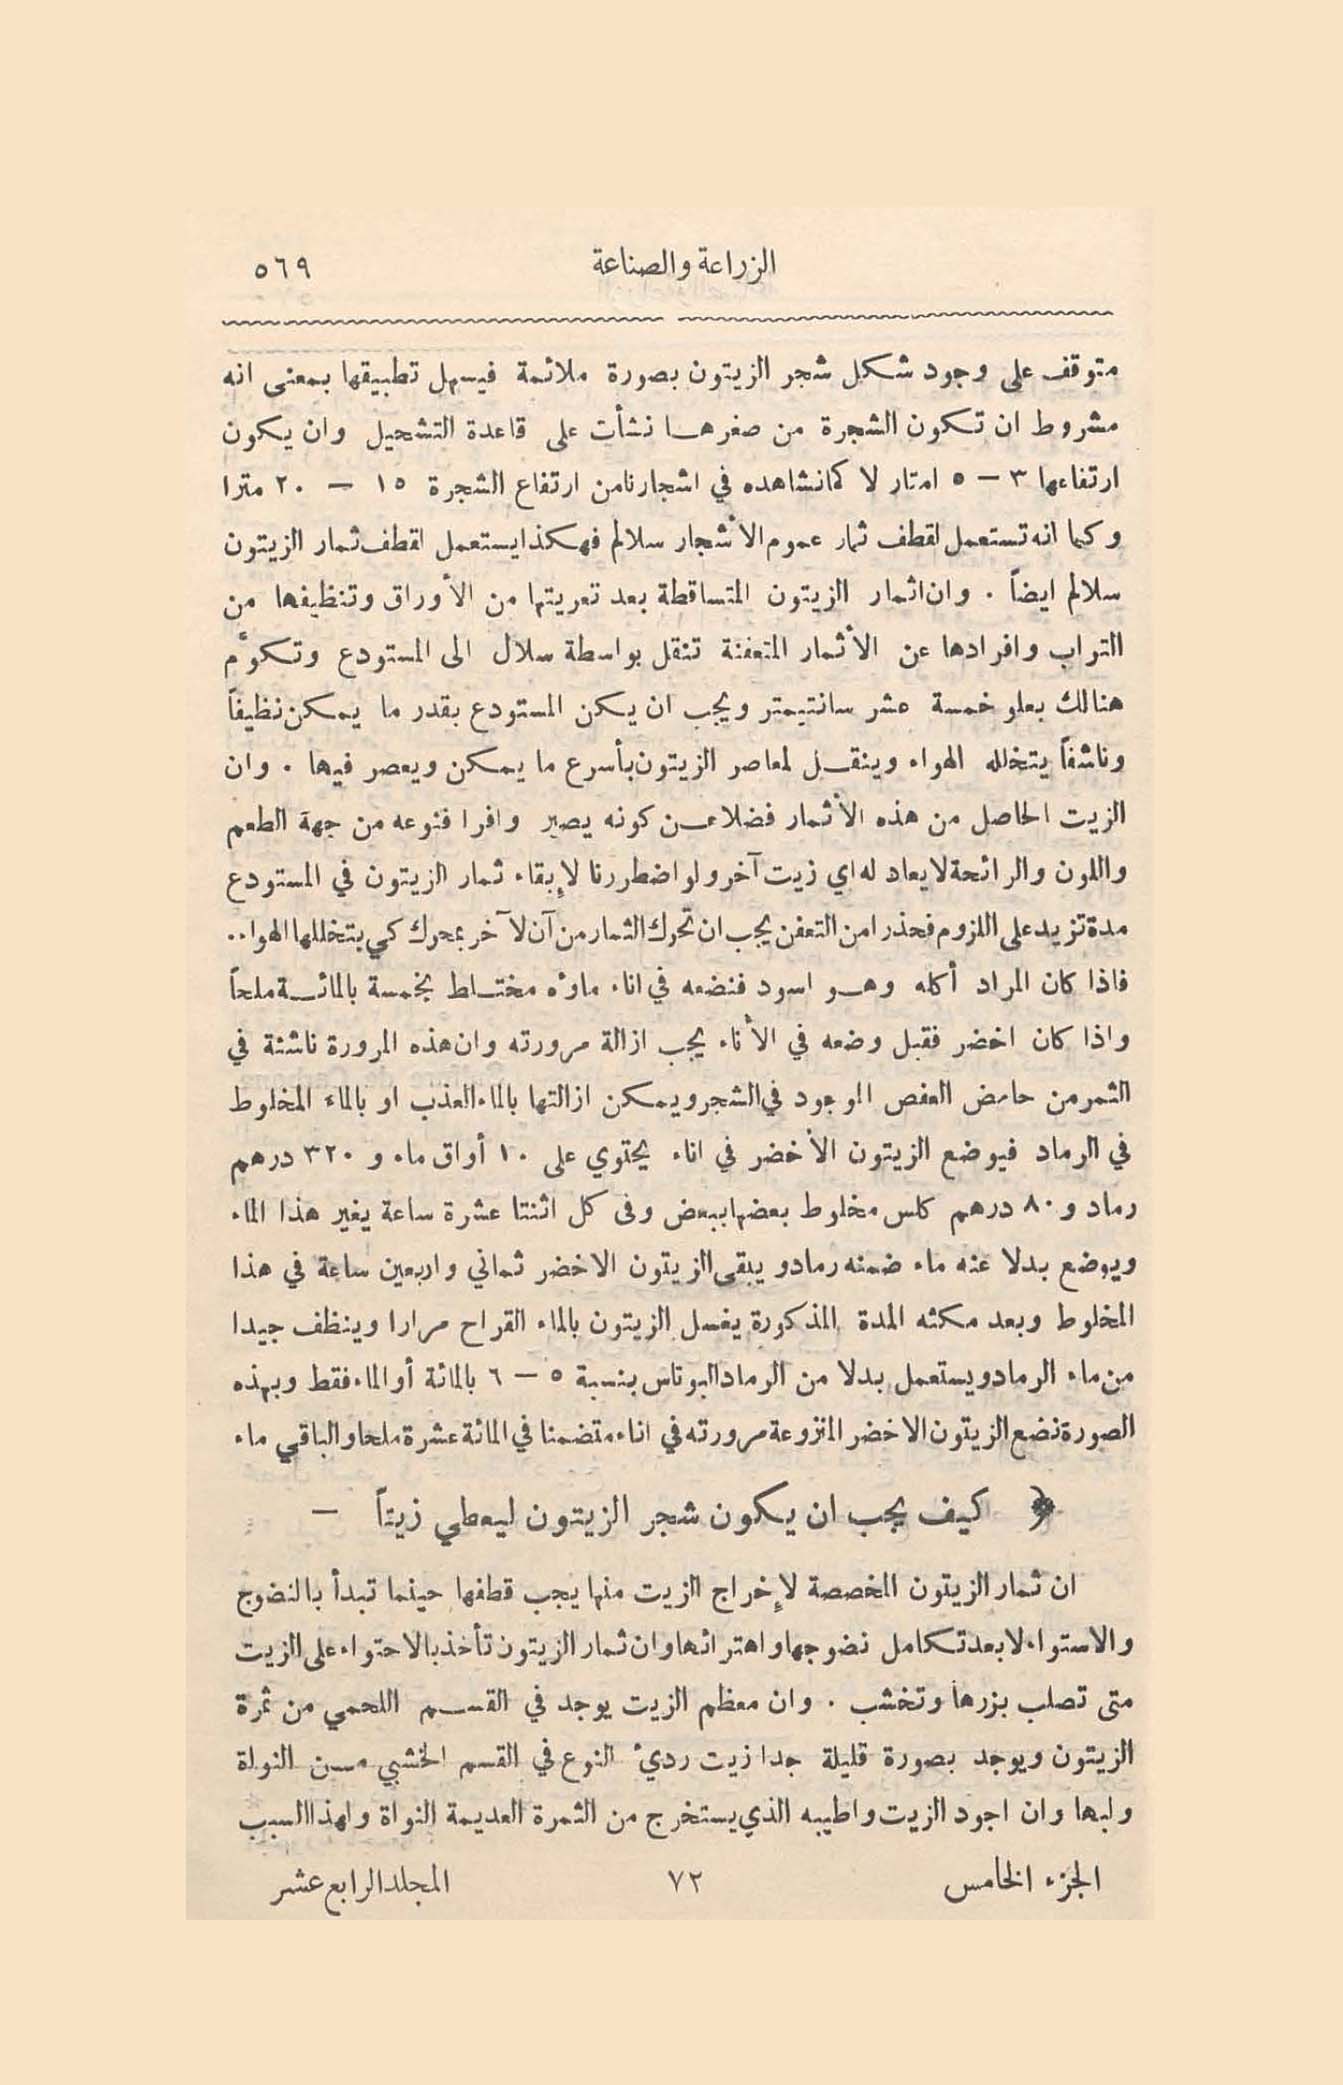 الزراعة والصناعة ٥٦٩
متوقف على وجود شكل شجر الزيتون بصورة ملائمة فيسهل تطبيقها بمعنى انه
مشروط ان تكون الشجرة من صغرها نشأت على قاعدة التشحيل وان يكون
ارتفاعها ٣ – ٥ امتار لا كما نشاهده في اشجارنا من ارتفاع الشجرة ١٥ – ٢٠ مترا
وكما انه تستعمل لقطف ثمار عموم الأشجار سلالم فهكذا يستعمل لقطف ثمار الزيتون
سلالم ايضاً . وان اثمار الزيتون المتساقطة بعد تعريتها من الأوراق وتنظيفها من
التراب وافرادها عن الأثمار المتعفنة تنقل بواسطة سلال الى المستودع وتكوَّم
هنالك بعلو خمسة عشر سانتيمتر ويجب ان يكن المستودع بقدر ما يمكن نظيفاً
وناشفاً يتخلله الهواء وينقل لمعاصر الزيتون بأسرع ما يمكن ويعصر فيها . وان
الزيت الحاصل من هذه الأثمار فضلا عن كونه يصير وافرا فنوعه من جهة الطعم
واللون والرائحة لا يعاد له اي زيت آخر ولو اضطررنا لإبقاء ثمار الزيتون في المستودع
مدة تزيد على اللزوم فحذرا من التعفن يجب ان تحرك الثمار من آن لآخر بمحرك كي يتخللها الهواء .
فاذا كان المراد أكله وهو اسود فنضعه في اناء ماؤه مختلط بخمسة بالمائة ملحاً
واذا كان اخضر فقبل وضعه في الأناء يجب ازالة مرورته وان هذه المرورة ناشئة في
الثمر من حامض العفص الموجود في الشجر ويمكن ازالتها بالماء العذب او بالماء المخلوط
في الرماد فيوضع الزيتون الأخضر في اناء يحتوي على ١٠ أواق ماء و ٣٢٠ درهم
رماد و ٨٠ درهم كلس مخلوط بعضها ببعض وفى كل اثنتا عشرة ساعة يغير هذا الماء
ويوضع بدلا عنه ماء ضمنه رماد ويبقى الزيتون الاخضر ثماني واربعين ساعة في هذا
المخلوط وبعد مكثه المدة المذكورة يغسل الزيتون بالماء القراح مرارا وينظف جيدا
من ماء الرماد ويستعمل بدلا من الرماد البوتاس بنسبة ٥ – ٦ بالمائة أو الماء فقط وبهذه
الصورة نضع الزيتون الاخضر المنزوعة مرورته في اناء متضمنا في المائة عشرة ملحا والباقي ماء
﴿ كيف يجب ان يكون شجر الزيتون ليعطي زيتاً –
ان ثمار الزيتون المخصصة لإخراج الزيت منها يجب قطفها حينما تبدأ بالنضوج
والاستواء لا بعد تكامل نضوجها واهترائها وان ثمار الزيتون تأخذ بالاحتواء على الزيت
متى تصلب بزرها وتخشب . وان معظم الزيت يوجد في القسم اللحمي من ثمرة
الزيتون ويوجد بصورة قليلة جدا زيت رديء النوع في القسم الخشبي من النواة
ولبها وان اجود الزيت واطيبه الذي يستخرج من الثمرة العديمة النواة ولهذا السبب
الجزء الخامس ٧٢ المجلد الرابع عشر